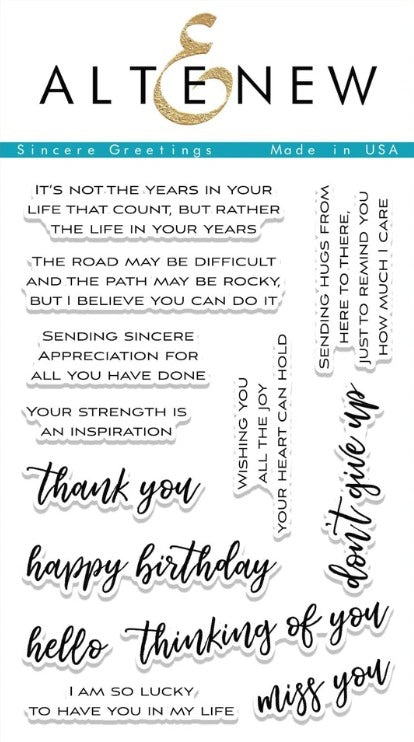 ALTENEW
Sincere Greetings Made in USA
IT'S NOT THE YEARS IN YOUR
LIFE THAT COUNT, BUT RATHER
THE LIFE IN YOUR YEARS
THE ROAD MAY BE DIFFICULT
AND THE PATH MAY BE ROCKY,
BUT I BELIEVE YOU CAN DO IT
SENDING HUGS FROM
HERE TO THERE,
JUST TO REMIND YOU
HOW MUCH I CARE
SENDING SINCERE
APPRECIATION FOR
ALL YOU HAVE DONE
WISHING YOU
ALL THE JOY
YOUR HEART CAN HOLD
YOUR STRENGTH IS
AN INSPIRATION
don't give up
thank you
happy birthday
hello
thinking of you
I AM SO LUCKY
TO HAVE YOU IN MY LIFE
miss you